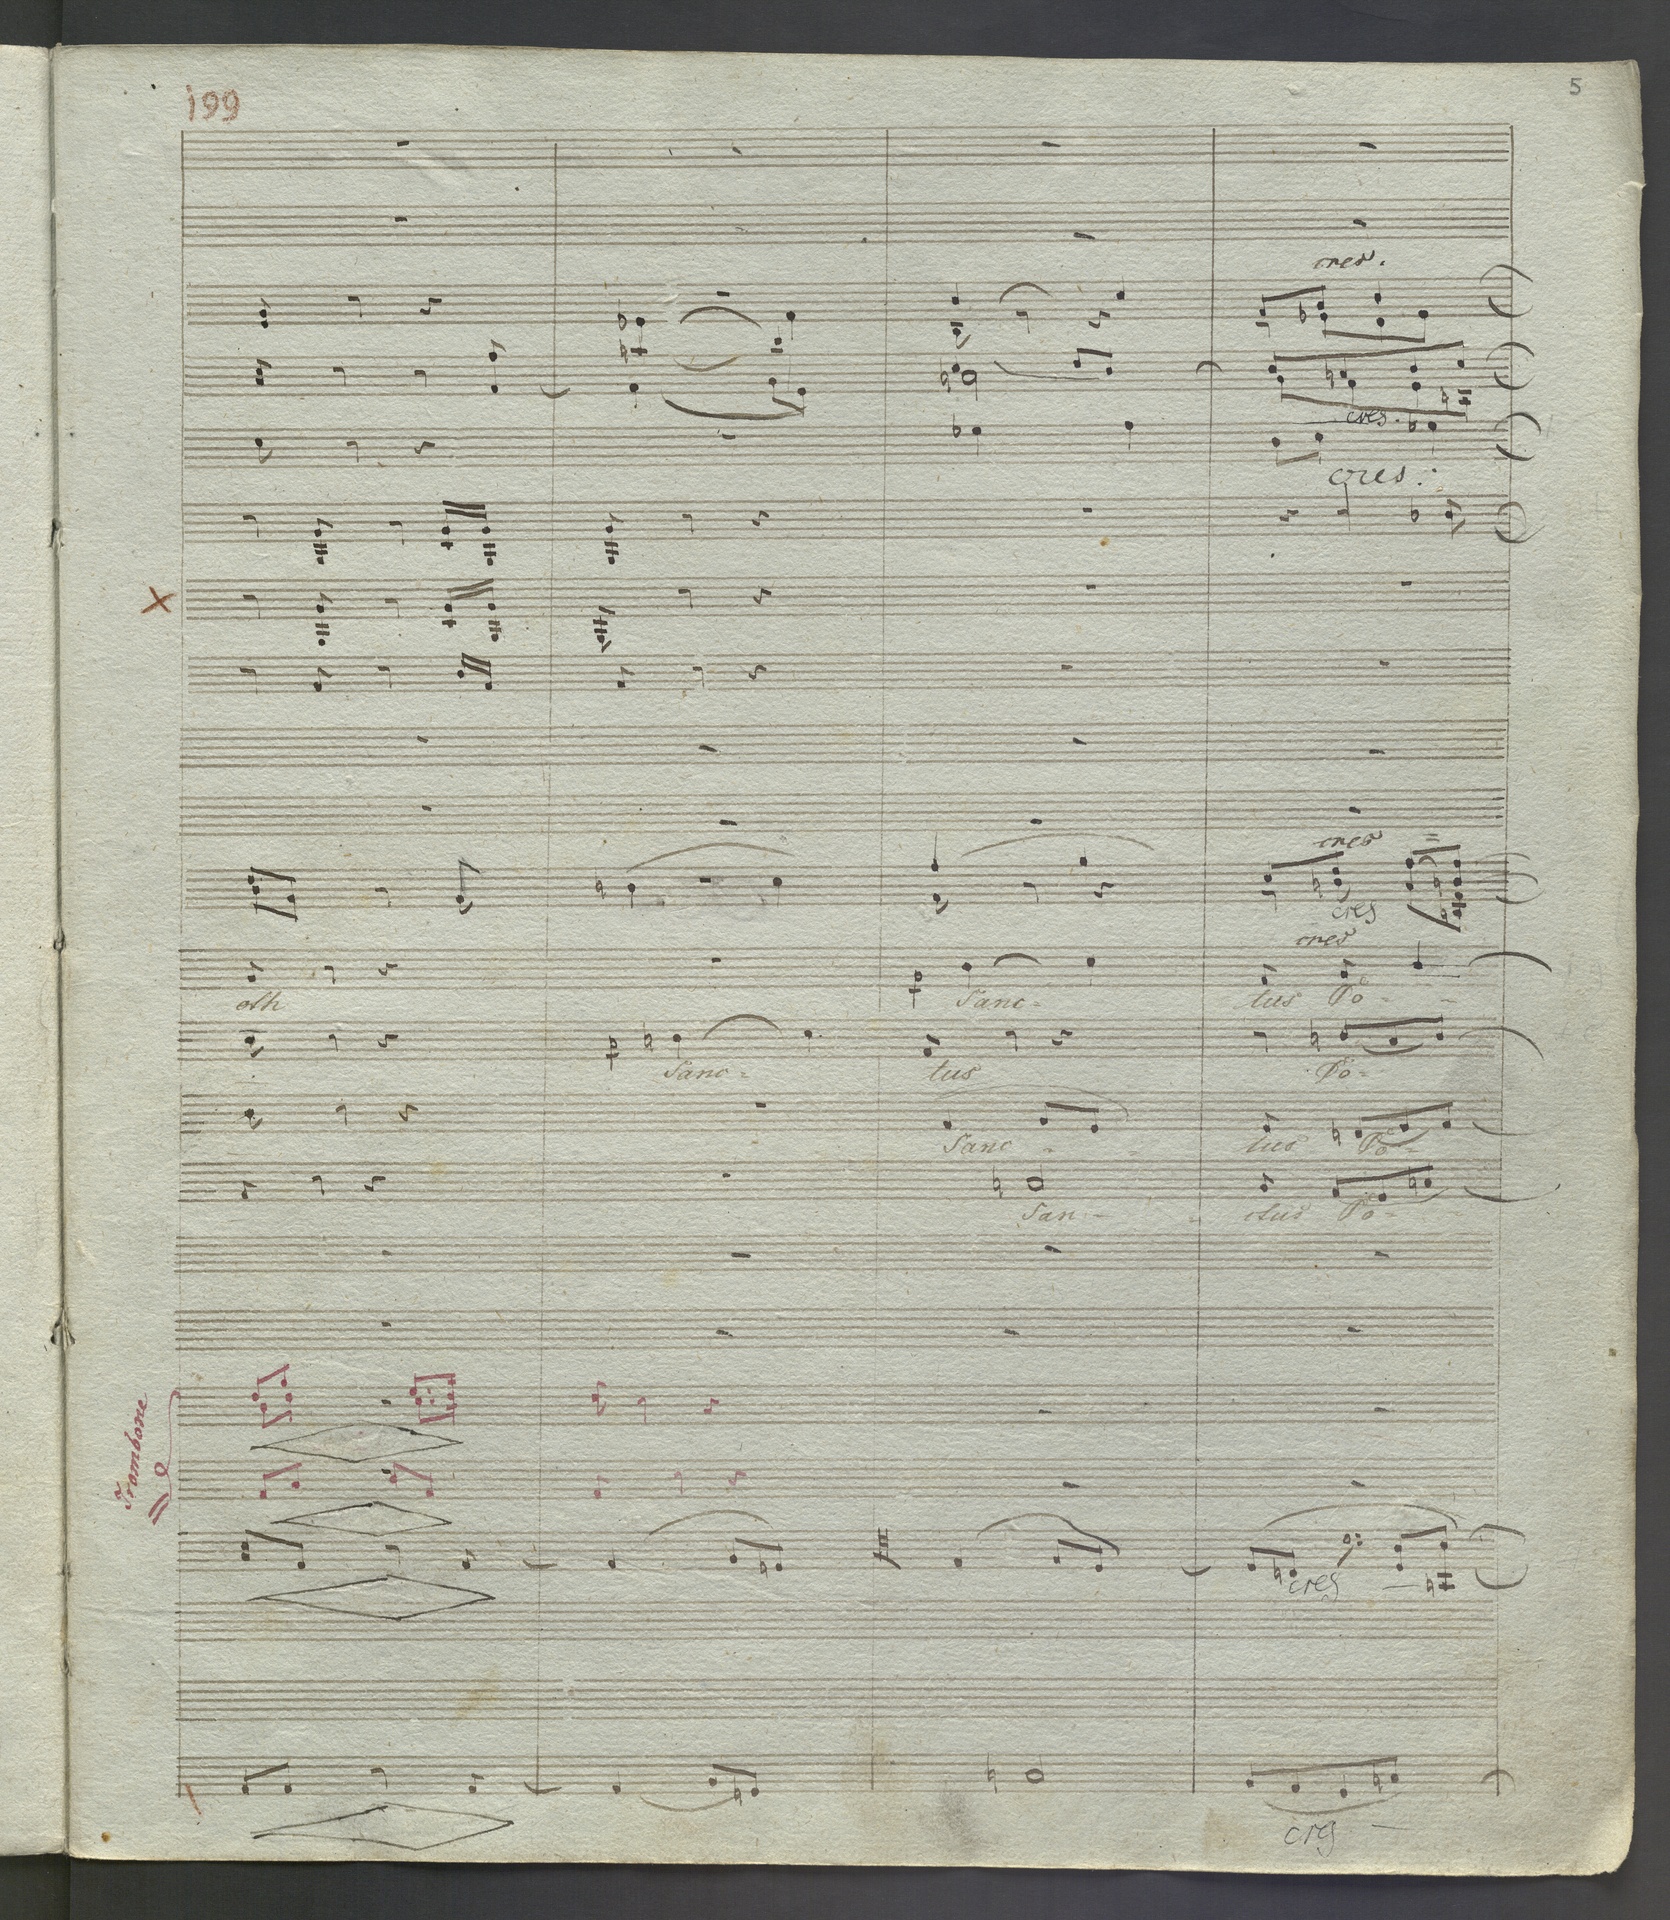 199
5
cres.
cres.
cres.
cres
cres
cres
oth Sanc- tus Po-
Sanc- tus Po-
Sanc - tus Po-
San- ctus Po-
Trombone
cres
cres